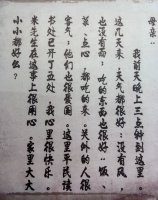 母亲：
我前天晚上三点钟到这里。
这几天来：天气都很好：没有风，
也没有雨：吃的东西也很好：饭、
菜、点心都吃的来。另外的人很
客气：他们也很爱国。这里平民读
书处已开了五处，我心里很快乐。
米先生在这事上很用心。家里大大
小小都好么？